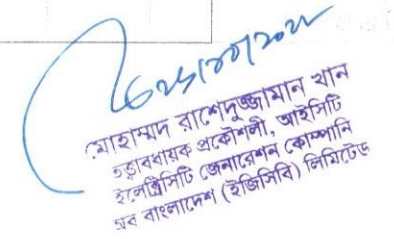 মোহাম্মদ রাশেদুজ্জামান খান
তত্ত্বাবধায়ক প্রকৌশলী, আইসিটি
ইলেক্ট্রিসিটি জেনারেশন কোম্পানি
অব বাংলাদেশ (ইজিসিবি) লিমিটেড